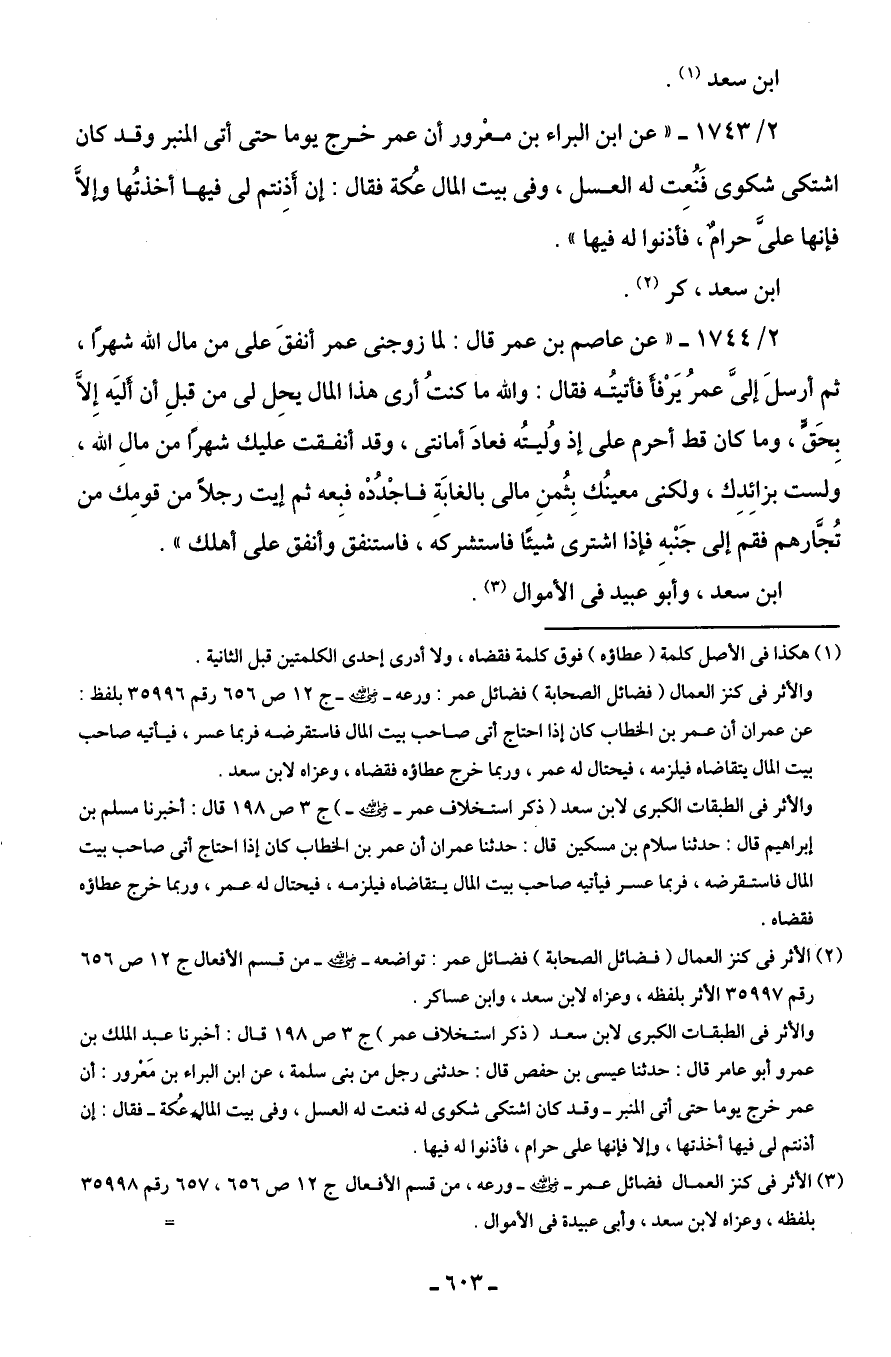 ابن سعد (١) .
٢/ ١٧٤٣ ـ « عن ابن البراء بن معْرور أن عمر خرج يوما حتى أتى المنبر وقد كان
اشتكى شكوى فَنُعِت له العسل ، وفى بيت المال عُكة فقال : إن أَذِنتم لى فيها أخذتُها وإلاَّ
فإنها علىَّ حرامٌ ، فأذنوا له فيها » .
ابن سعد ، كر (٢) .
٢/ ١٧٤٤ ـ « عن عاصم بن عمر قال : لما زوجنى عمر أنفقَ على من مال الله شهرًا ،
ثم أرسلَ إلىَّ عمرُ يَرْفأَ فأتيتُه فقال : والله ما كنتُ أرى هذا المال يحل لى من قبلِ أن أَلِيَه إلاَّ
بِحَقٍّ ، وما كان قط أحرم على إذ وُلِيتُه فعادَ أمانتى ، وقد أنفقت عليك شهرًا من مالِ الله ،
ولست بزائِدِك ، ولكنى معينُك بِثُمنِ مالى بالغابَةِ فاجْدُدْه فبعه ثم إيت رجلاً من قومِك من
تُجَّارهم فقم إلى جَنْبِه فإذا اشترى شيئًا فاستشركه ، فاستنفق وأنفق على أهلك » .
ابن سعد ، وأبو عبيد فى الأموال (٣) .
(١) هكذا فى الأصل كلمة ( عطاؤه ) فوق كلمة فقضاه ، ولا أدرى إحدى الكلمتين قبل الثانية .
والأثر فى كنز العمال ( فضائل الصحابة ) فضائل عمر : ورعه ـ رضي الله عنه ـ ج ١٢ ص ٦٥٦ رقم ٣٥٩٩٦ بلفظ :
عن عمران أن عمر بن الخطاب كان إذا احتاج أتى صاحب بيت المال فاستقرضه فربما عسر ، فيأتيه صاحب
بيت المال يتقاضاه فيلزمه ، فيحتال له عمر ، وربما خرج عطاؤه فقضاه ، وعزاه لابن سعد .
والأثر فى الطبقات الكبرى لابن سعد ( ذكر استخلاف عمر ـ رضي الله عنه ـ ) ج ٣ ص ١٩٨ قال : أخبرنا مسلم بن
إبراهيم قال : حدثنا سلام بن مسكين قال : حدثنا عمران أن عمر بن الخطاب كان إذا احتاج أتى صاحب بيت
المال فاستقرضه ، فربما عسر فيأتيه صاحب بيت المال يتقاضاه فيلزمه ، فيحتال له عمر ، وربما خرج عطاؤه
فقضاه .
(٢) الأثر فى كنز العمال ( فضائل الصحابة ) فضائل عمر : تواضعه ـ رضي الله عنه ـ من قسم الأفعال ج ١٢ ص ٦٥٦
رقم ٣٥٩٩٧ الأثر بلفظه ، وعزاه لابن سعد ، وابن عساكر .
والأثر فى الطبقات الكبرى لابن سعد ( ذكر استخلاف عمر ) ج ٣ ص ١٩٨ قال : أخبرنا عبد الملك بن
عمرو أبو عامر قال : حدثنا عيسى بن حفص قال : حدثنى رجل من بنى سلمة ، عن ابن البراء بن مَعْرور : أن
عمر خرج يوما حتى أتى المنبر ـ وقد كان اشتكى شكوى له فنعت له العسل ، وفى بيت المال عُكة ـ فقال : إن
أذنتم لى فيها أخذتها ، وإلا فإنها على حرام ، فأذنوا له فيها .
(٣) الأثر فى كنز العمال فضائل عمر ـ رضي الله عنه ـ ورعه ، من قسم الأفعال ج ١٢ ص ٦٥٦ ، ٦٥٧ رقم ٣٥٩٩٨
بلفظه ، وعزاه لابن سعد ، وأبى عبيدة فى الأموال . =
ـ ٦٠٣ ـ